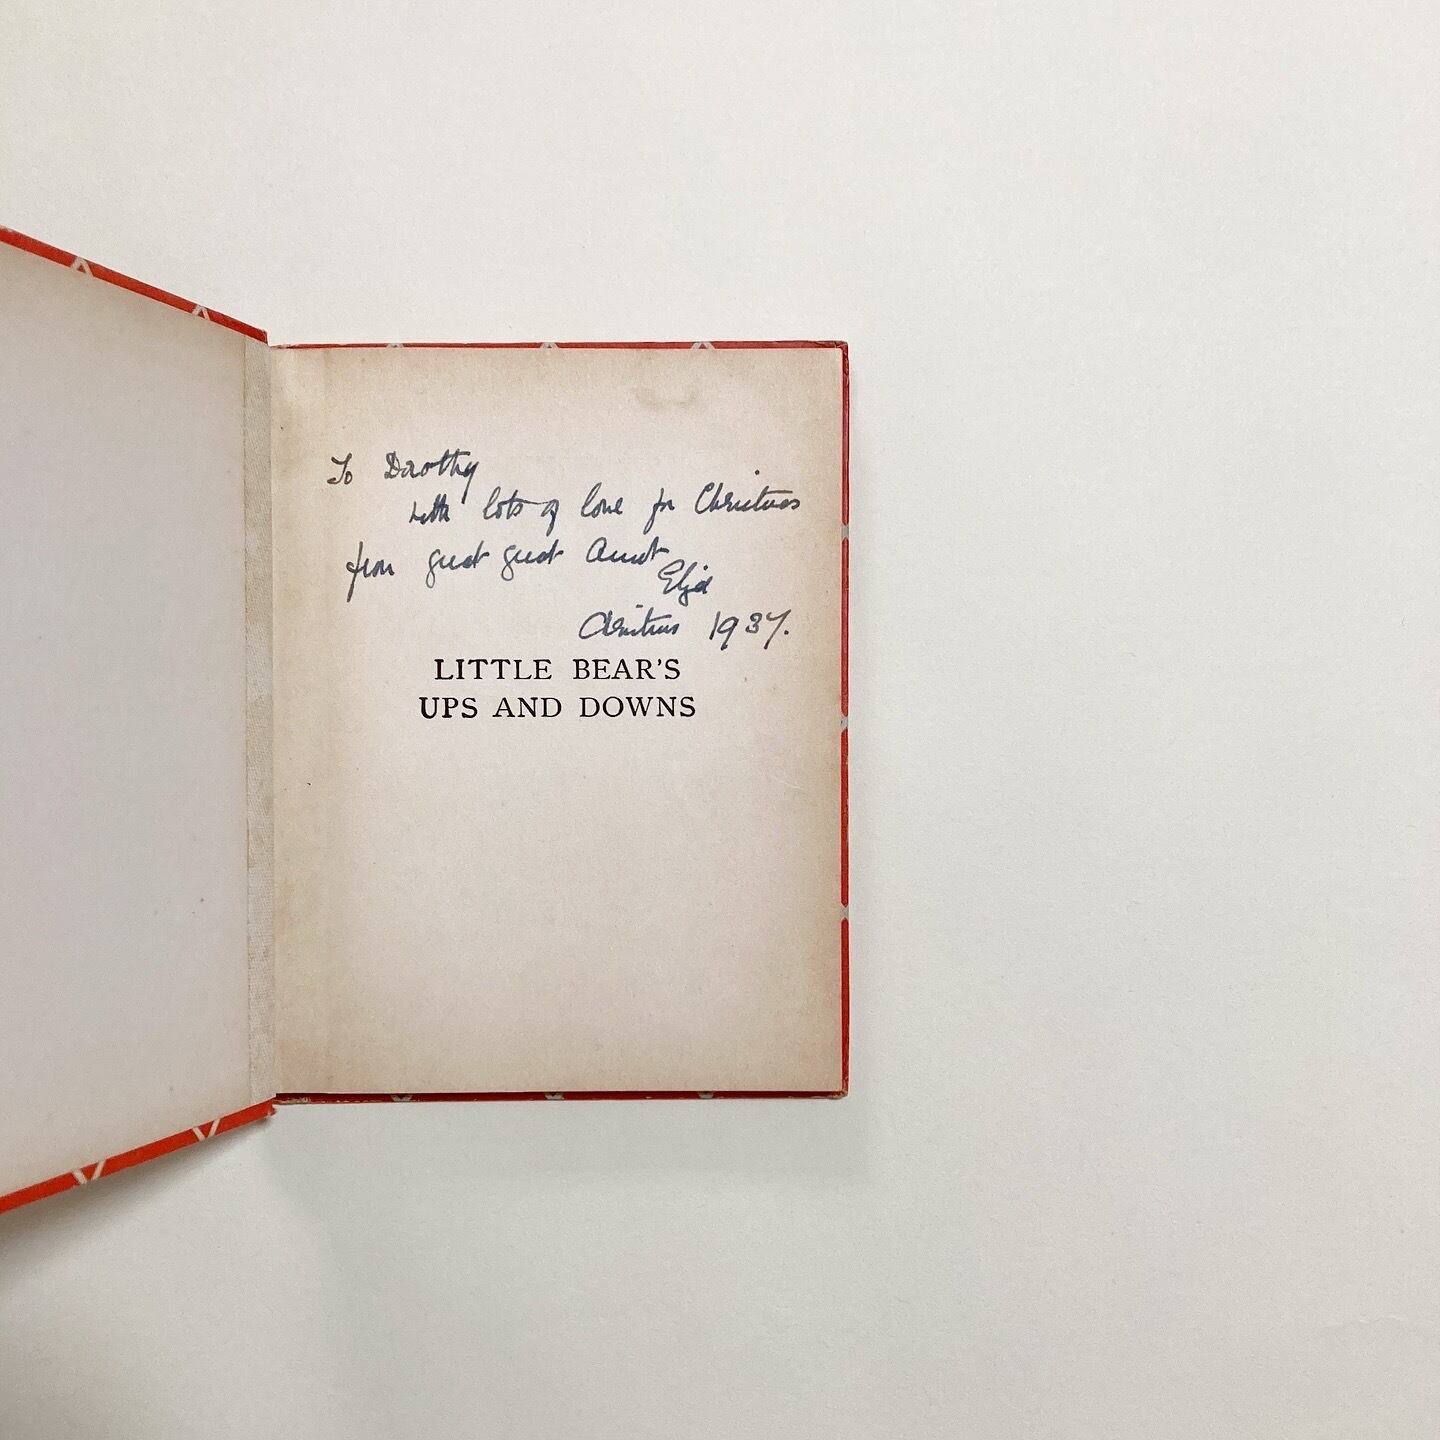 To Dorothy
with lots of love for Christmas
from great great Aunt
Christmas 1937.
LITTLE BEAR'S
UPS AND DOWNS